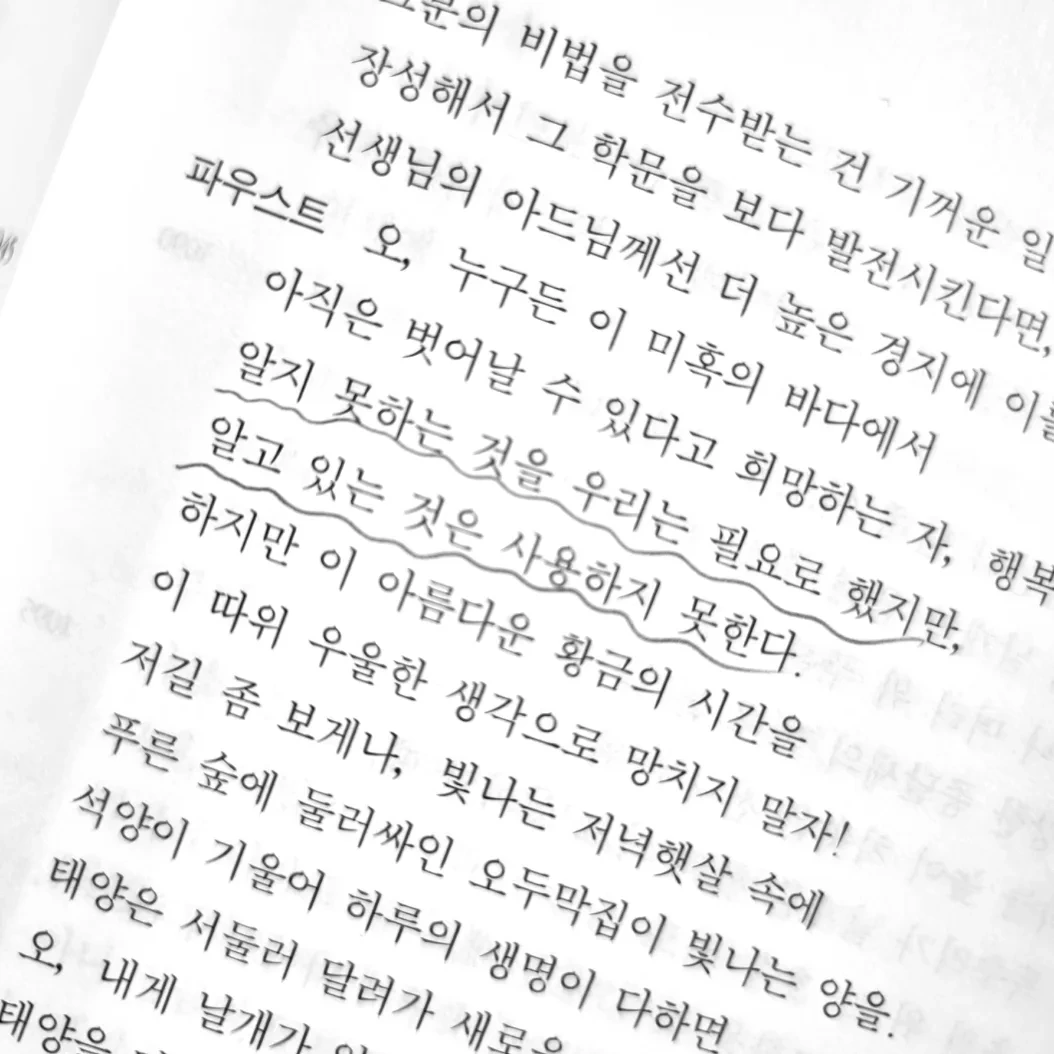 비법을 전수받는 건 기꺼운 일
장성해서 그 학문을 보다 발전시킨다면,
선생님의 아드님께선 더 높은 경지에
파우스트 오, 누구든 이 미혹의 바다에서
아직은 벗어날 수 있다고 희망하는 자,
알지 못하는 것을 우리는 필요로 했지만,
알고 있는 것은 사용하지 못한다.
하지만 이 아름다운 황금의 시간을
이 따위 우울한 생각으로 망치지 말자!
저길 좀 보게나, 빛나는 저녁햇살 속에
푸른 숲에 둘러싸인 오두막집이 빛나는 양을.
석양이 기울어 하루의 생명이 다하면
태양은 서둘러 달려가 새로운
오, 내게 날개가
태양을